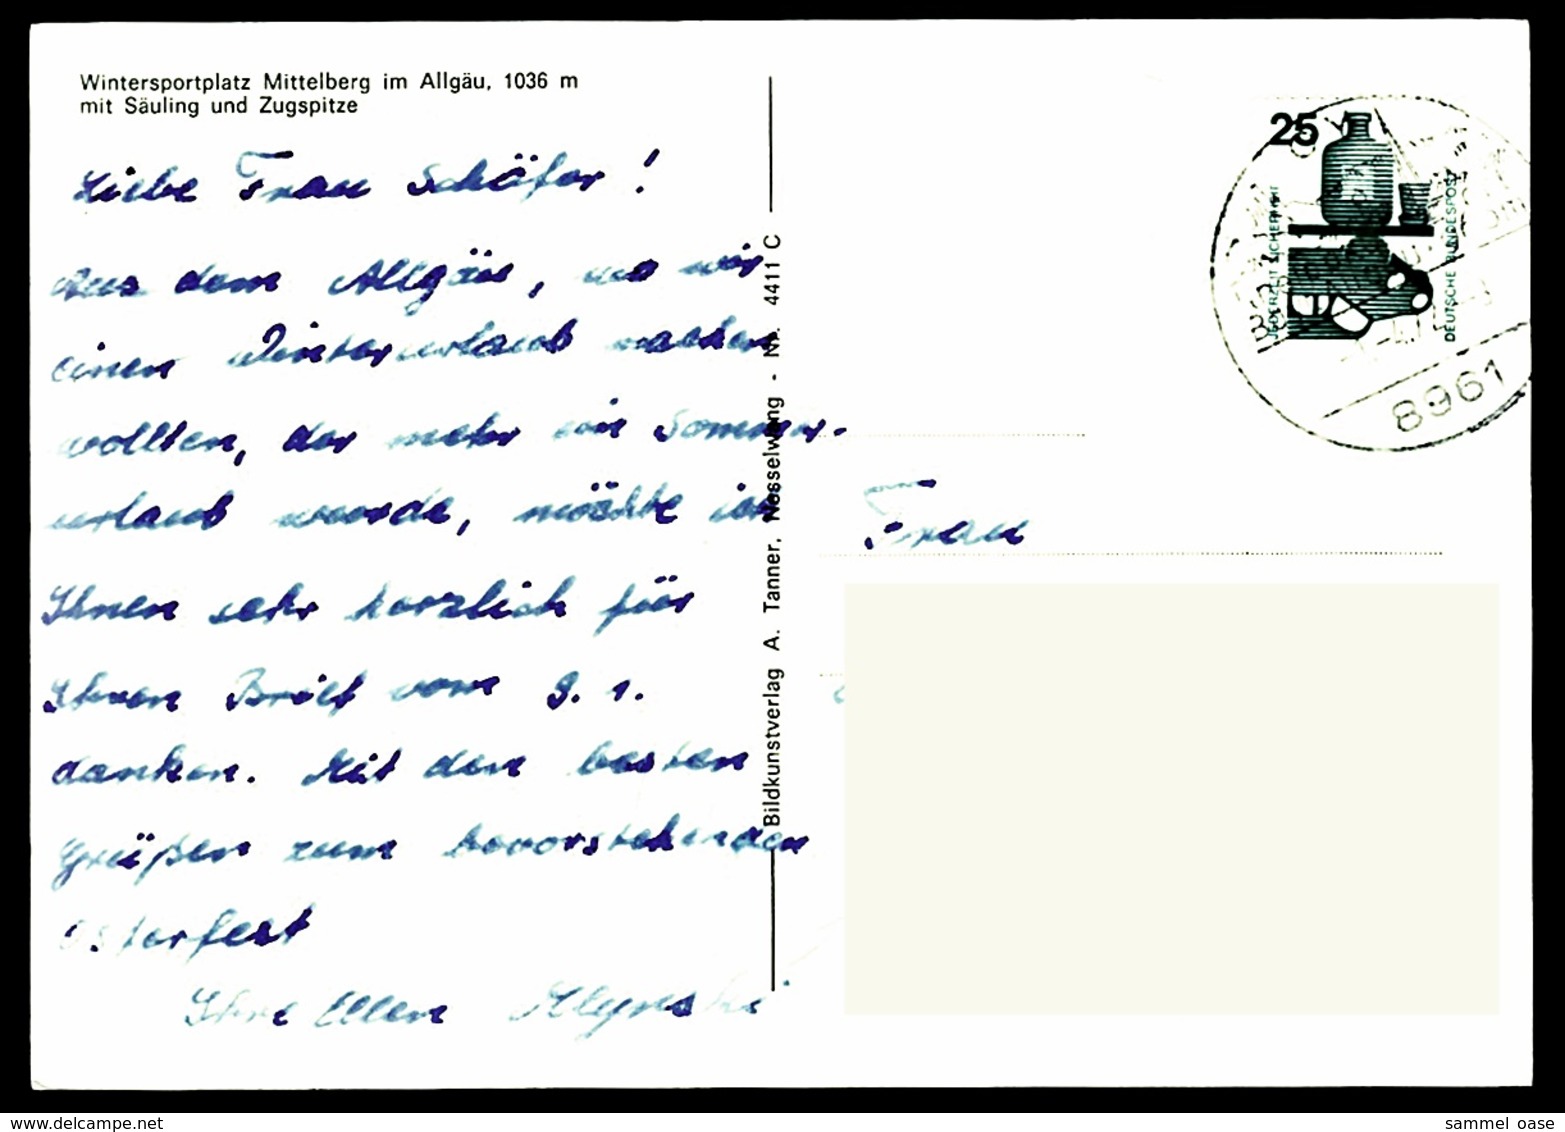 Wintersportplatz Mittelberg im Allgäu, 1036 m
mit Säuling und Zugspitze
Liebe Frau Schäfer!
Aus dem Allgäu, wo wir
einen Winterurlaub machen
wollten, der mehr ein Sommer-
urlaub wurde, möchte ich
Ihnen sehr herzlich für
Ihren Brief vom 9. 1.
danken. Mit den besten
Grüßen zum bevorstehenden
Osterfest
Ihre Ellen
Bildkunstverlag A. Tanner, Nesselwang - Nr. 4411 C
25
JEDERZEIT SICHERHEIT
DEUTSCHE BUNDESPOST
8961
Frau
www.delcampe.net
sammel_oase